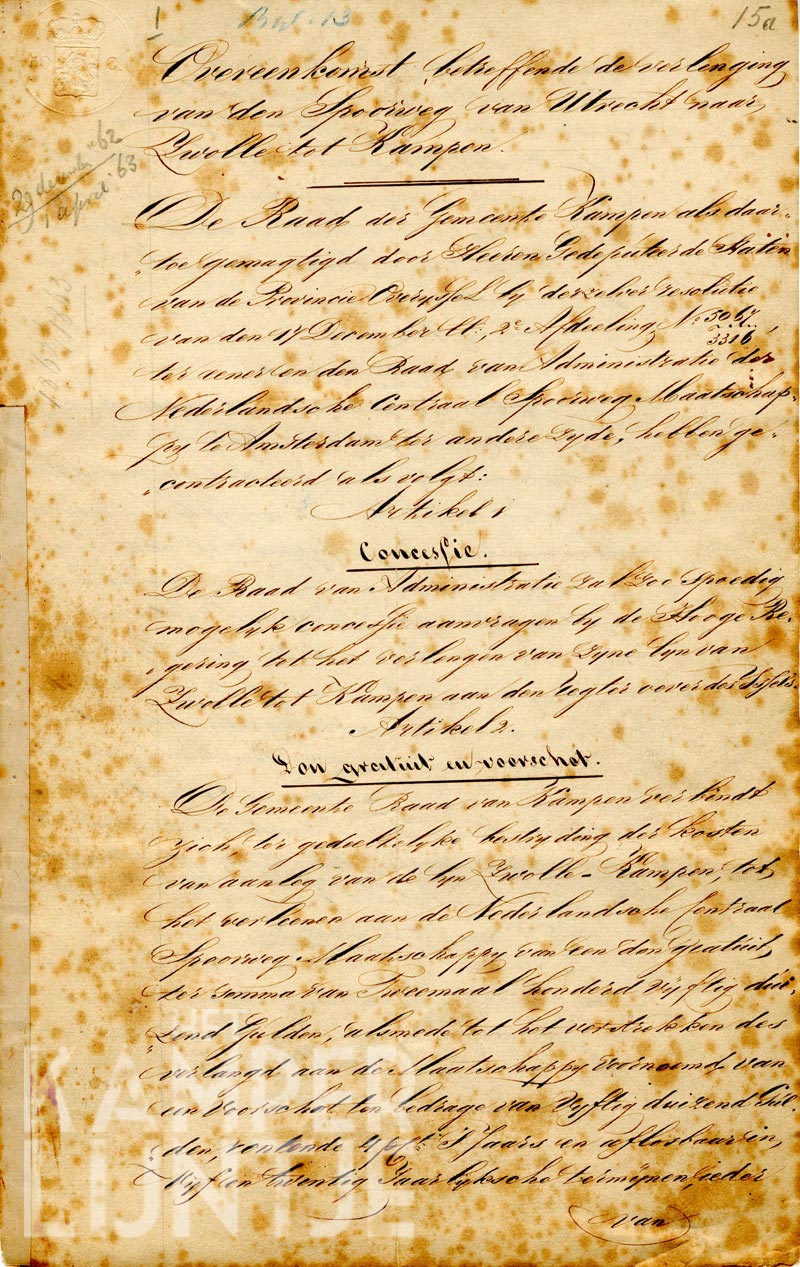 1 Byl. 13 15a
Overeenkomst betreffende de verlenging
van den Spoorweg van Utrecht naar
Zwolle tot Kampen.
29 december '62
1 April '63
De Raad der Gemeente Kampen als daar-
"toe gemagtigd door Heeren Gedeputeerde Staten
van de Provincie Overyssel by derzelver resolutie
van den 17 December ll:, 2e Afdeeling No 5067/3316,
ter eener en den Raad van Administratie der
Nederlandsche Centraal Spoorweg Maatschap-
py te Amsterdam ter andere zyde, hebben ge-
"contracteerd als volgt:
Artikel 1
Concessie.
De Raad van Administratie zal zoo spoedig
mogelyk concessie aanvragen by de Hooge Re-
"gering tot het verlengen van zyne lyn van
Zwolle tot Kampen aan den regter oever des Yssels.
Artikel 2.
Don gratuit en voorschot.
De Gemeente Raad van Kampen verbindt
zich, ter gedeeltelyke bestryding der kosten
van aanleg van de lyn Zwolle-Kampen, tot
het verleenen aan de Nederlandsche Centraal
Spoorweg Maatschappy van een don gratuit,
ter somma van Tweemaal honderd vyftig dui-
"zend Gulden, alsmede tot het verstrekken des
verlangd aan de Maatschappy voornoemd van
een voorschot ten bedrage van Vyftig duizend Gul-
"den, rentende 4 pCt 's Jaars en aflosbaar in,
Vyf en twintig Jaarlyksche termynen, ieder
van
HET
KAMPER
LIJNTJE